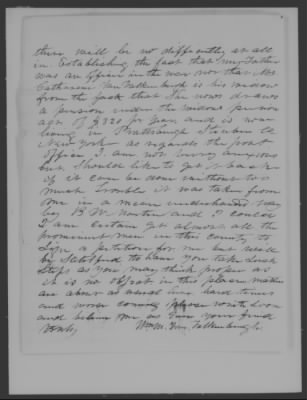 there will be no difficulty at all
in Establishing the fact that my Father
was an officer in the war nor that Mrs.
Catharine Van Valkenburgh is his widow
from the fact that She now draws
a pension under the widows pension
act of $320 pr year and is now
living in Prattsburgh Steuben Co
New York as regards the Post
Office I am not very anxious
but should like to get it back
if it can be done without too
much trouble it was taken from
me in a mean underhanded way
by B.W. and I could
I am certain get almost all the
prominent men in this county to
Sign a petition for me but will
be Satisfied to have you take such
Steps as you may think proper as
it is no object in this place matters
are about as usual here hard times
and worse coming please write soon
and believe me as Ever your friend
Wm. Van Valkenburgh